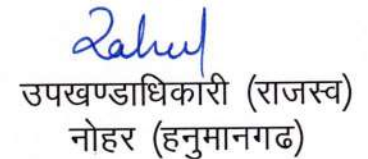 Rahul
उपखण्डाधिकारी (राजस्व)
नोहर (हनुमानगढ)